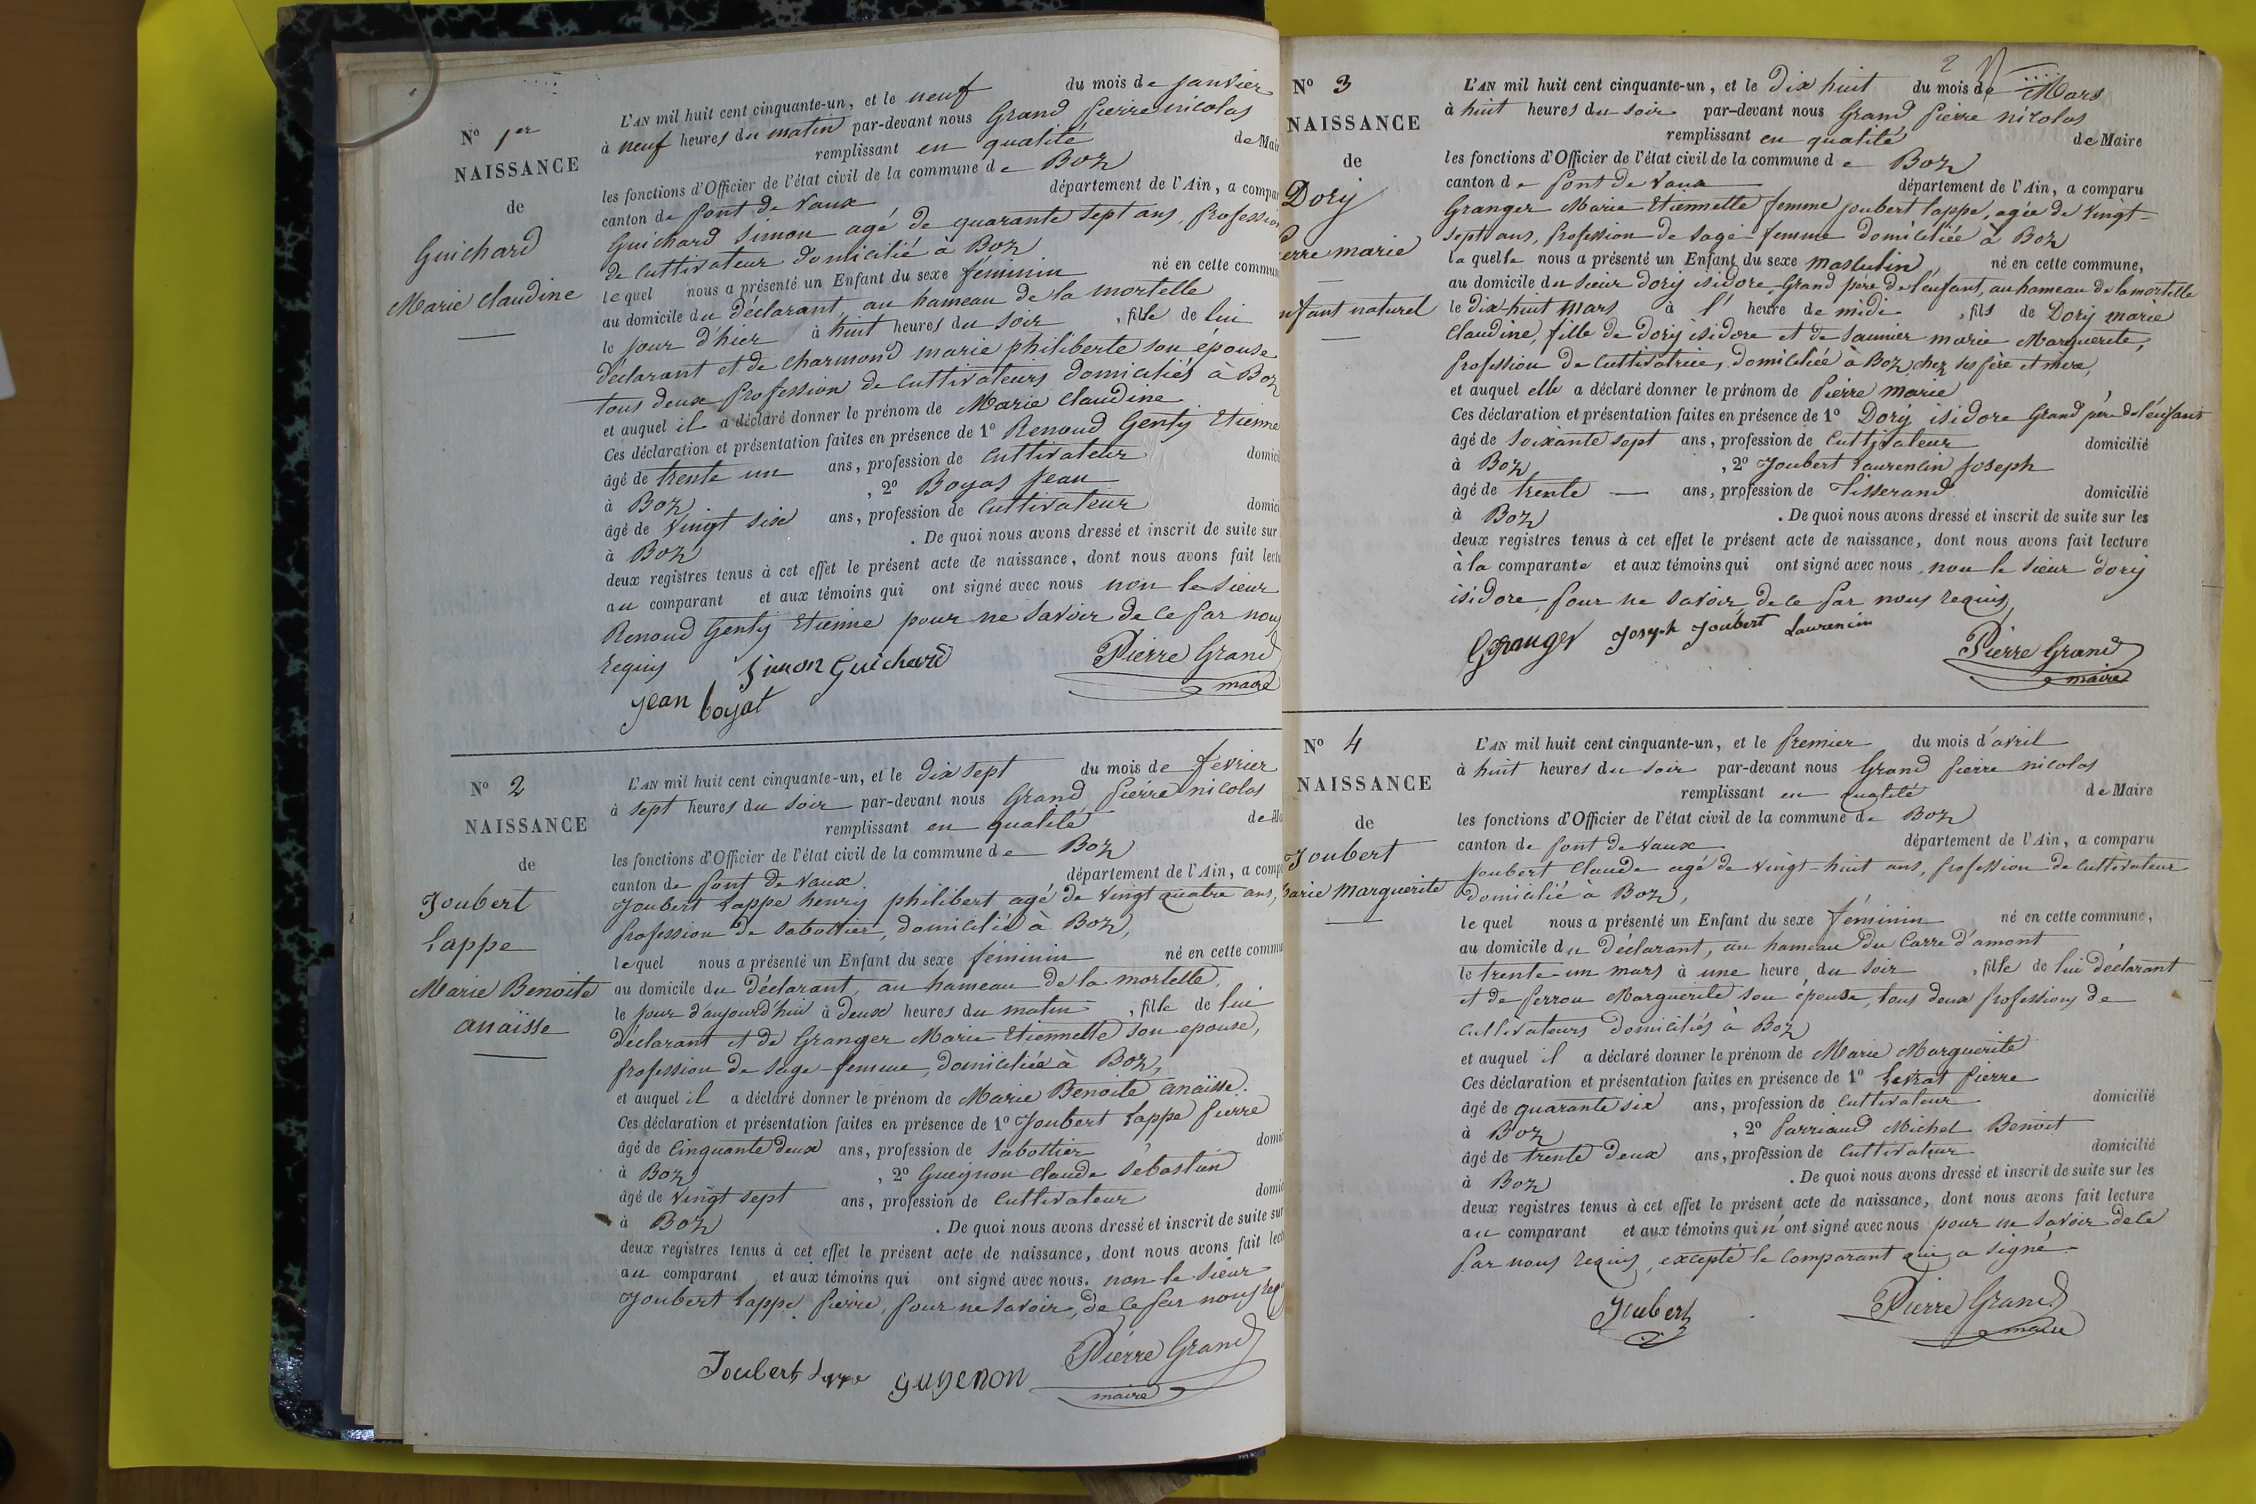 N° 1er
NAISSANCE
de
Guichard
Marie Claudine
L'AN mil huit cent cinquante-un, et le neuf du mois de janvier
à neuf heures du matin par-devant nous Grand pierre nicolas
remplissant en qualité de Mair
les fonctions d'Officier de l'état civil de la commune de Boz
canton de pont de Vaux département de l'Ain, a compar
Guichard Simon agé de quarante sept ans, profession
de Cultivateur domicilié à Boz
lequel nous a présenté un Enfant du sexe féminin né en cette commun
au domicile du déclarant, au hameau de la mortelle
le jour d'hier à huit heures du soir, fille de lui
déclarant et de Charmond marie philiberte son épouse
tous deux profession de Cultivateurs domiciliés à Boz
et auquel il a déclaré donner le prénom de Marie Claudine
Ces déclaration et présentation faites en présence de 1° Renoud Genty Etienne
âgé de trente un ans, profession de Cultivateur domici
à Boz, 2° Boyas jean
âgé de Vingt six ans, profession de Cultivateur domici
à Boz. De quoi nous avons dressé et inscrit de suite sur
deux registres tenus à cet effet le présent acte de naissance, dont nous avons fait lectu
au comparant et aux témoins qui ont signé avec nous non le Sieur
Renoud Genty Etienne pour ne savoir de ce par nous
requis Simon Guichard Pierre Grand
maire
jean boyat
N° 2
NAISSANCE
de
Joubert
Lappe
Marie Benoite
anaïsse
L'AN mil huit cent cinquante-un, et le dix sept du mois de février
à sept heures du soir par-devant nous Grand pierre nicolas
remplissant en qualité de Ma
les fonctions d'Officier de l'état civil de la commune de Boz
canton de pont de Vaux. département de l'Ain, a comp
Joubert Lappe henry philibert agé de Vingt quatre ans,
profession de Sabottier, domicilié à Boz,
lequel nous a présenté un Enfant du sexe féminin né en cette commu
au domicile du déclarant, au hameau de la mortelle,
le jour d'aujourd'hui à deux heures du matin, fille de lui
déclarant et de Granger Marie Etiennette son epouse,
profession de Sage-femme, domiciliée à Boz,
et auquel il a déclaré donner le prénom de Marie Benoite anaïsse.
Ces déclaration et présentation faites en présence de 1° Joubert Lappe pierre
âgé de Cinquante deux ans, profession de Sabottier domic
à Boz, 2° Gueignon Claude Sébastien
âgé de Vingt sept ans, profession de Cultivateur domic
à Boz. De quoi nous avons dressé et inscrit de suite sur
deux registres tenus à cet effet le présent acte de naissance, dont nous avons fait lec
au comparant et aux témoins qui ont signé avec nous. non le Sieur
Joubert Lappe pierre, pour ne savoir, de ce par nous req
Joubert Lappe guyenon Pierre Grand
maire
N° 3
NAISSANCE
de
Dory
erre marie
nfant naturel
2
L'AN mil huit cent cinquante-un, et le Dix huit du mois de Mars
à huit heures du soir par-devant nous Grand pierre nicolas
remplissant en qualité de Maire
les fonctions d'Officier de l'état civil de la commune de Boz
canton de pont de Vaux département de l'Ain, a comparu
Granger Marie Etiennette femme joubert Lappe, agée de Vingt-
sept ans, profession de Sage-femme domiciliée à Boz
laquelle nous a présenté un Enfant du sexe masculin né en cette commune,
au domicile du sieur Dory isidore Grand père de l'enfant, au hameau de la mortelle
le dix-huit Mars à l'heure de midi, fils de Dory marie
Claudine, fille de Dory isidore et de Saunier marie Marguerite,
profession de Cultivatrice, domiciliée à Boz, chez ses père et mère,
et auquel elle a déclaré donner le prénom de Pierre Marie
Ces déclaration et présentation faites en présence de 1° Dory isidore Grand père de l'enfant
âgé de Soixante sept ans, profession de Cultivateur domicilié
à Boz, 2° Joubert Laurencin joseph
âgé de trente — ans, profession de Tisserand domicilié
à Boz. De quoi nous avons dressé et inscrit de suite sur les
deux registres tenus à cet effet le présent acte de naissance, dont nous avons fait lecture
à la comparante et aux témoins qui ont signé avec nous, non le sieur Dory
isidore, pour ne savoir de ce par nous requis
Granger Joseph Joubert Laurencin Pierre Grand
maire
N° 4
NAISSANCE
de
Joubert
arie Marguerite
L'AN mil huit cent cinquante-un, et le premier du mois d'avril
à huit heures du soir par-devant nous Grand pierre nicolas
remplissant en qualité de Maire
les fonctions d'Officier de l'état civil de la commune de Boz
canton de pont de Vaux département de l'Ain, a comparu
Joubert Claude agé de Vingt-huit ans, profession de Cultivateur
domicilié à Boz,
lequel nous a présenté un Enfant du sexe féminin né en cette commune,
au domicile du déclarant, au hameau du Carre d'amont
le trente-un mars à une heure du soir, fille de lui déclarant
et de perrou Marguerite son épouse, tous deux professions de
Cultivateurs domiciliés à Boz
et auquel il a déclaré donner le prénom de Marie Marguerite
Ces déclaration et présentation faites en présence de 1° Levrat pierre
âgé de quarante six ans, profession de Cultivateur domicilié
à Boz, 2° parriaud Michel Benoit
âgé de trente deux ans, profession de Cultivateur domicilié
à Boz. De quoi nous avons dressé et inscrit de suite sur les
deux registres tenus à cet effet le présent acte de naissance, dont nous avons fait lecture
au comparant et aux témoins qui n'ont signé avec nous pour ne savoir de ce
par nous requis, excepté le comparant qui a signé.
Joubert Pierre Grand
maire